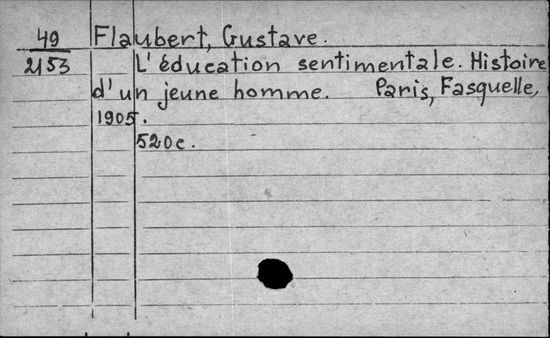 49 Flaubert, Gustave.
2153 L'éducation sentimentale. Histoire
d'un jeune homme. Paris, Fasquelle,
1905.
520 c.